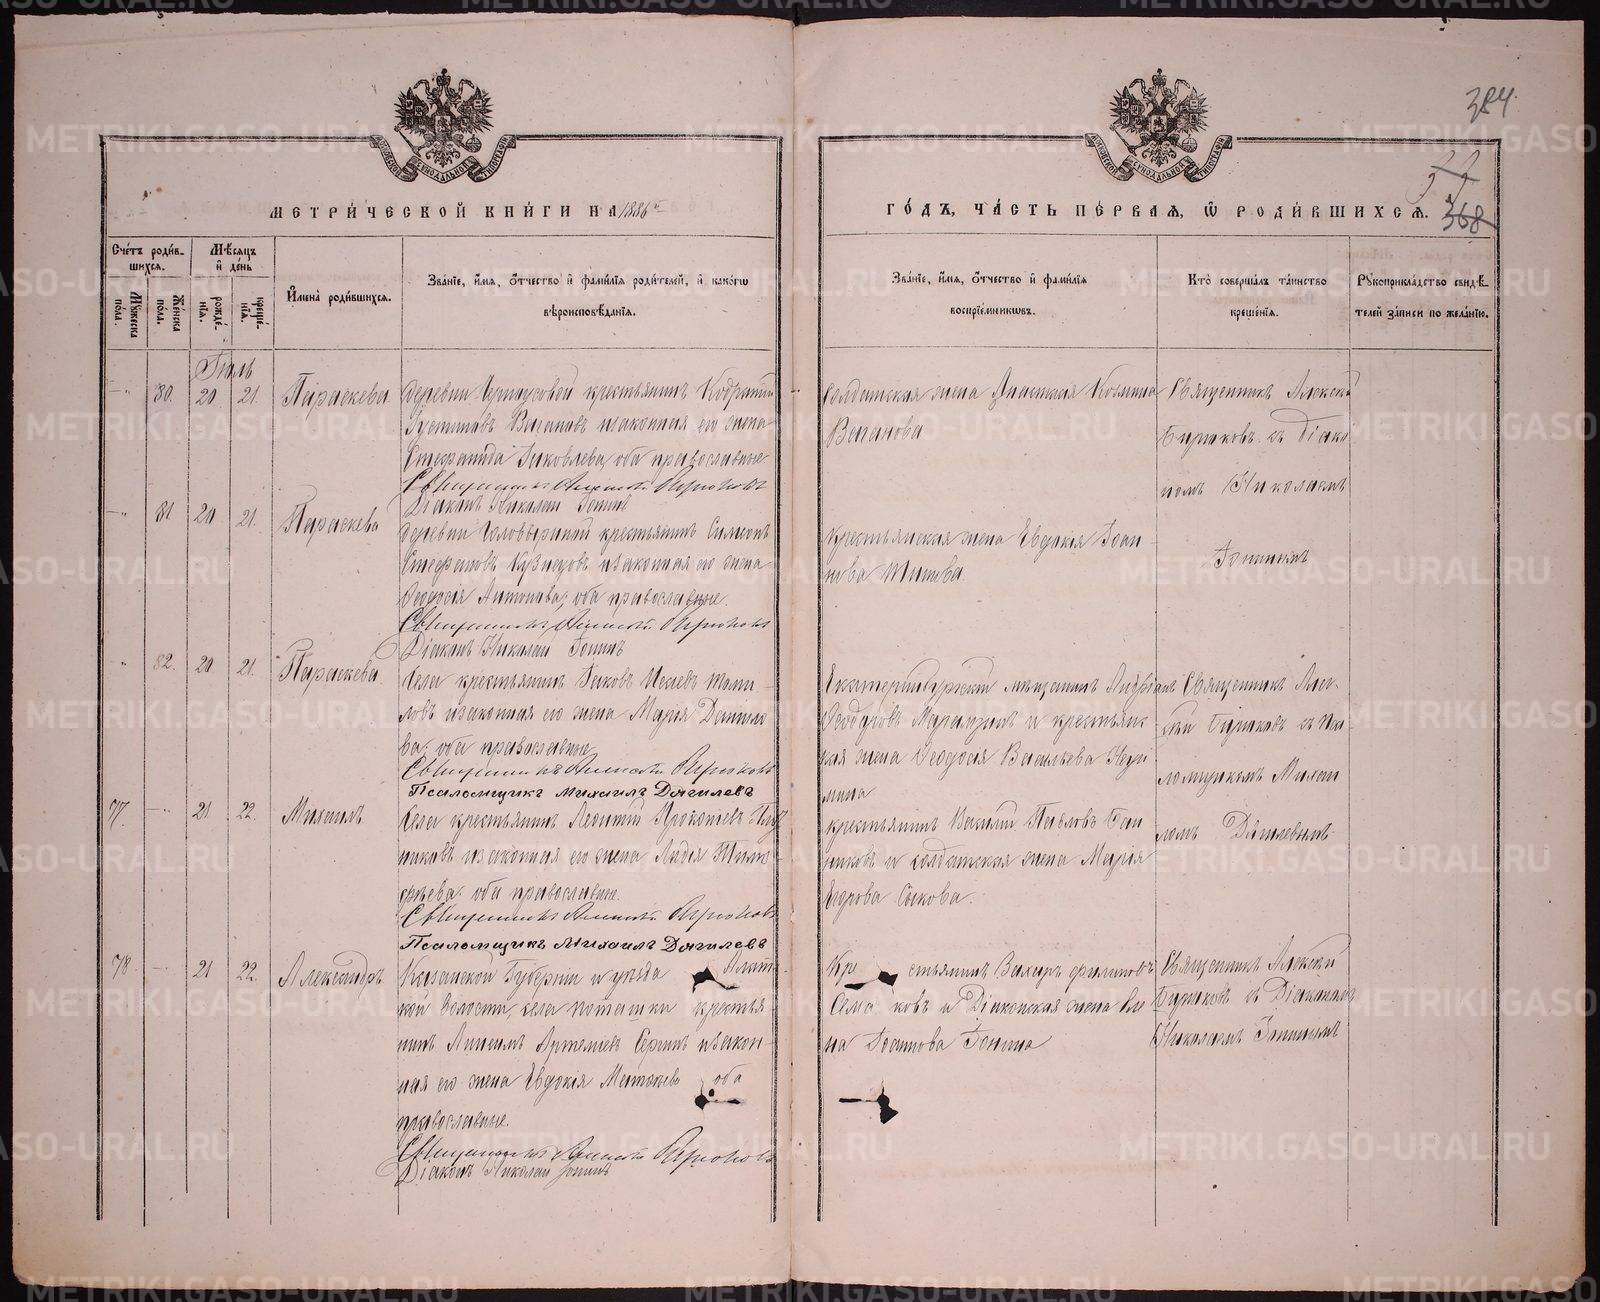 384
368
МЕТРИ́ЧЕСКОЙ КНИ́ГИ НА 1886й
ГО́ДЪ, ЧА́СТЬ ПЕ́РВАЯ, Ѡ РОДИ́ВШИХСЯ.
Сче́тъ роди́в-
шихся.
Мѣ́сяцъ
и҆ де́нь
Му́жеска
по́ла.
Же́нска
по́ла.
рожде́-
нїя.
креще́-
нїя.
И҆мена̀ роди́вшихся.
Зва́нїе, и҆́мя, ѻ҆́тчество и҆ фами́лїя роди́телей, и҆ како́гѡ
вѣроисповѣ́данїя.
Зва́нїе, и҆́мя, ѻ҆́тчество и҆ фами́лїя
воспрїе́мниковъ.
Кто̀ соверша́лъ та́инство
креще́нїя.
Рꙋкоприкла́дство свидѣ́-
телей за́писи по жела́нїю.
Іюль
80. 20 21. Параскева
деревни крестьянинъ Кодратъ
Іустиновъ Вагановъ и законная его жена
Стефанида Іаковлева, оба православные
Священникъ Алексѣй Бирюковъ
Діаконъ Николай Іонинъ
Солдатская жена Анастасія Козмина
Ваганова
Священникъ Алексѣй
Бирюковъ съ Діако
номъ Николаемъ
81. 20 21. Параскева
деревни крестьянинъ Симеонъ
Стефановъ Кузнецовъ и законная его жена
Ѳеодосія Антонова, оба православные.
Священникъ Алексѣй Бирюковъ
Діаконъ Николай Іонинъ
крестьянская жена Евдокія Іоан-
нова Титова.
Іонинымъ
82. 20 21. Параскева
Села крестьянинъ Іаковъ Исаевъ Томи-
ловъ и законная его жена Марія Данило
ва, оба православные
Священникъ Алексѣй Бирюковъ
Псаломщикъ Михаилъ Дягилевъ
Екатеринбургскій мѣщанинъ Андріанъ
Ѳеодоровъ и крестьянс-
кая жена Ѳеодосія Васильева
мина
Священникъ Алек-
сѣй Бирюковъ съ Пса
ломщикомъ Михаи
ломъ Дягилевымъ
77. 21 22. Михаилъ
Села крестьянинъ Леонтій Прокопьевъ
никовъ и законная его жена Лидія Тимо-
феева, оба православные.
Священникъ Алексѣй Бирюковъ
Псаломщикъ Михаилъ Дягилевъ
крестьянинъ Василій Павловъ Бан
никовъ и солдатская жена Марія
Егорова Сыкова.
78. 21 22. Александръ
Казанской Губерніи и уѣзда
кой волости, села крестья-
нинъ Артемьевъ Сергинъ и закон-
ная его жена Евдокія оба
православные.
Священникъ Алексѣй Бирюковъ
Діаконъ Николай Іонинъ
Кре стьянинъ Захаръ Филиповъ
Сема ковъ и Діаконская жена Еле
на Іоаннова Іонина
Священникъ Алексѣй
Бирюковъ съ Діакономъ
Николаемъ Іонинымъ
METRIKI.GASO-URAL.RU